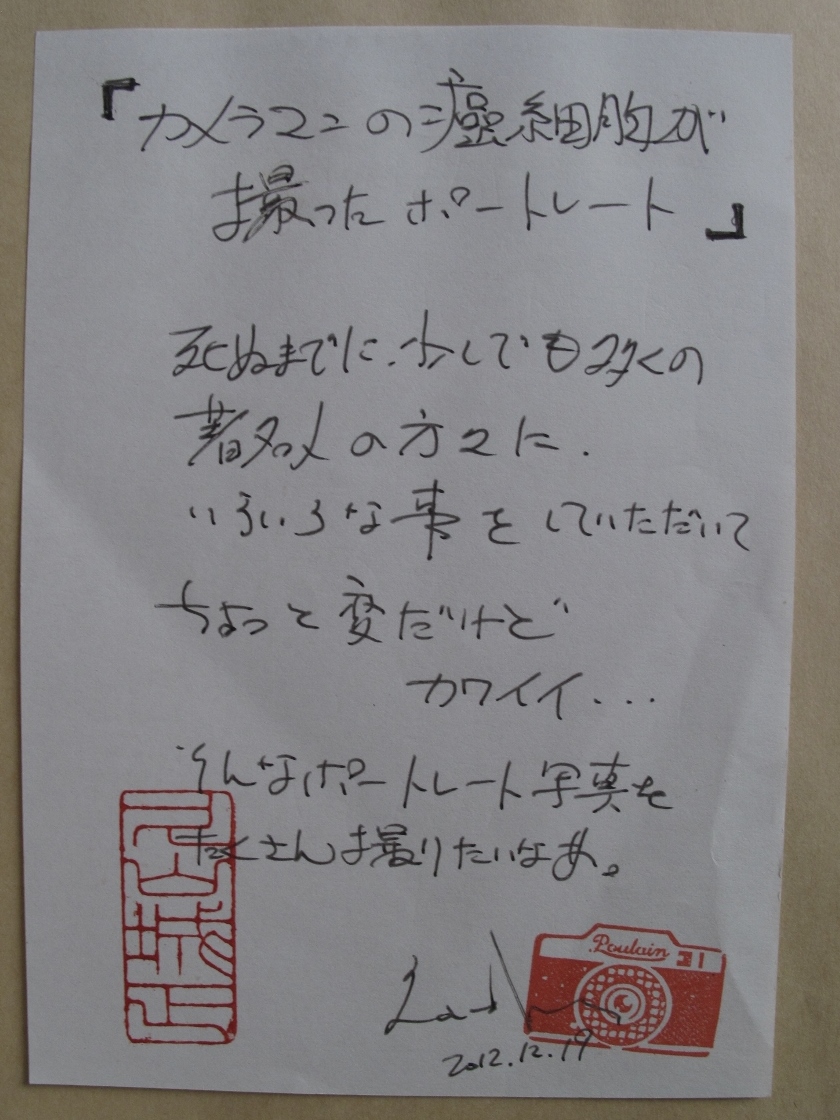 『カメラマンの癌細胞が
撮ったポートレート』
死ぬまでに、少しでも多くの
著名人の方々に、
いろいろな事をしていただいて
ちょっと変だけど
カワイイ...
そんなポートレート写真を
たくさん撮りたいなあ。
Poulain
2012.12.19